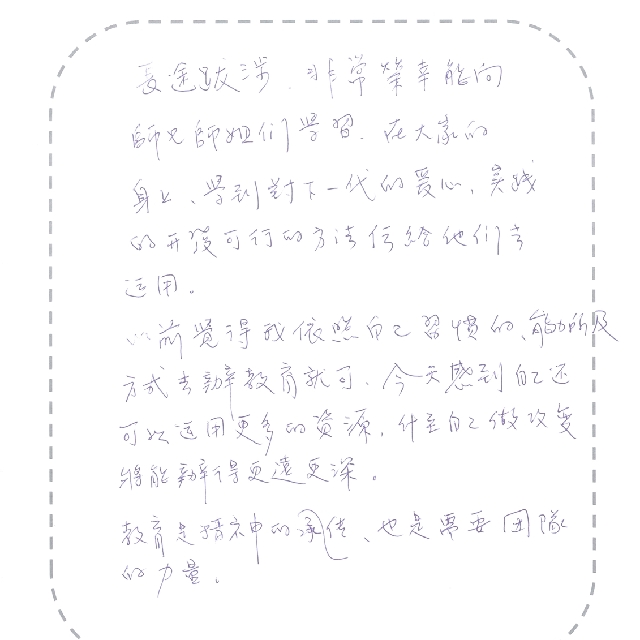 長途跋涉，非常榮幸能向
師兄師姐們學習，在大家的
身上，學到對下一代的愛心，實踐
的開發可行的方法傳給他們去
运用。
以前覺得我依照自己習慣的、能力所及
方式去辦教育就可，今天感到自己还
可以运用更多的資源，什至自己做改变
將能辦得更遠更深。
教育是精神的承传，也是需要团隊
的力量。